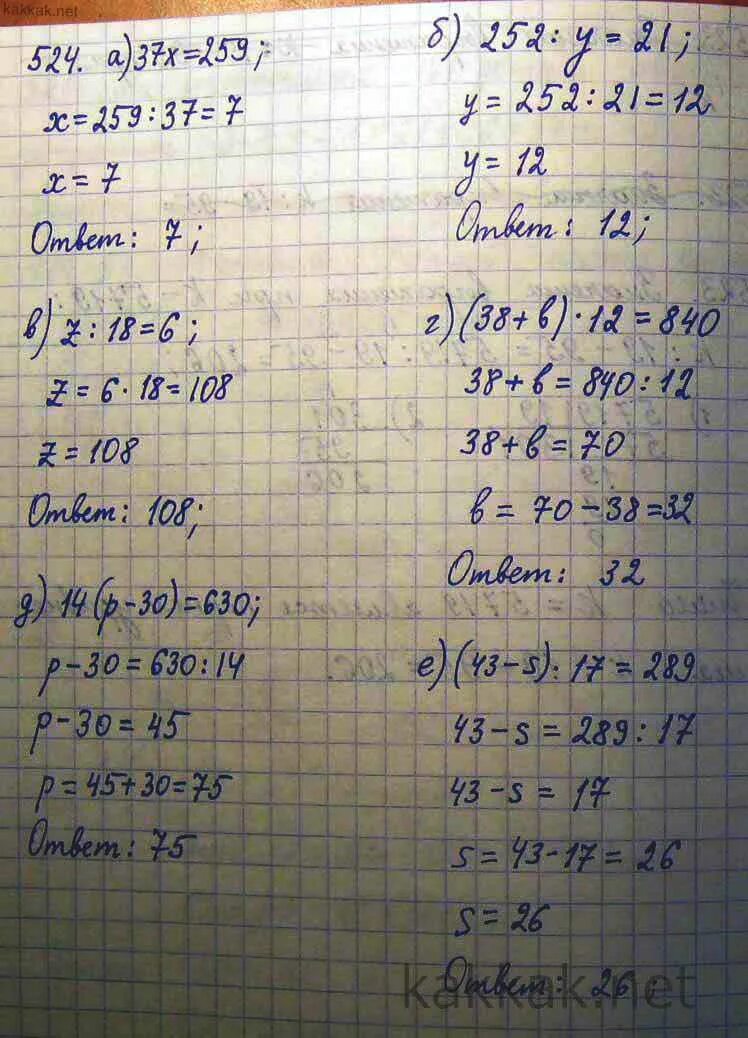 kakkak.net
524. а) 37x=259;
x=259:37=7
x=7
Ответ: 7;
б) 252:y=21;
y=252:21=12
y=12
Ответ: 12;
в) z:18=6;
z=6·18=108
z=108
Ответ: 108;
г) (38+в)·12=840
38+в=840:12
38+в=70
в=70-38=32
Ответ: 32
д) 14(p-30)=630;
p-30=630:14
p-30=45
p=45+30=75
Ответ: 75
е) (43-s):17=289
43-s=289:17
43-s=17
s=43-17=26
s=26
Ответ: 26;
kakkak.net